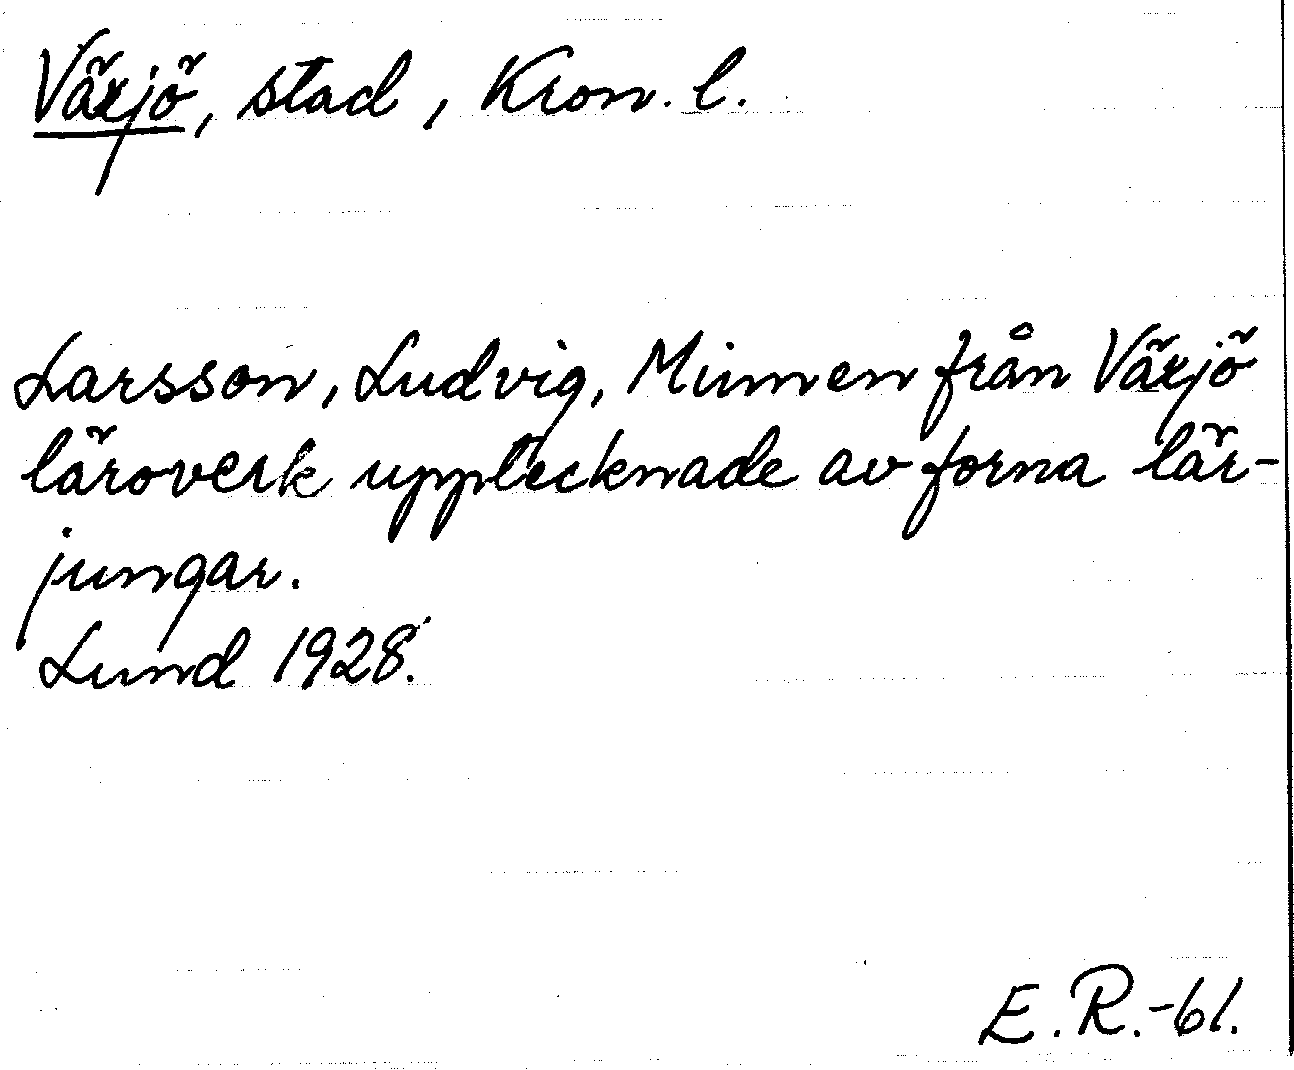 Växjö, stad, Kron. l.
Larsson, Ludvig, Minnen från Växjö
läroverk upptecknade av forna lär-
jungar.
Lund 1928.
E. R. -61.